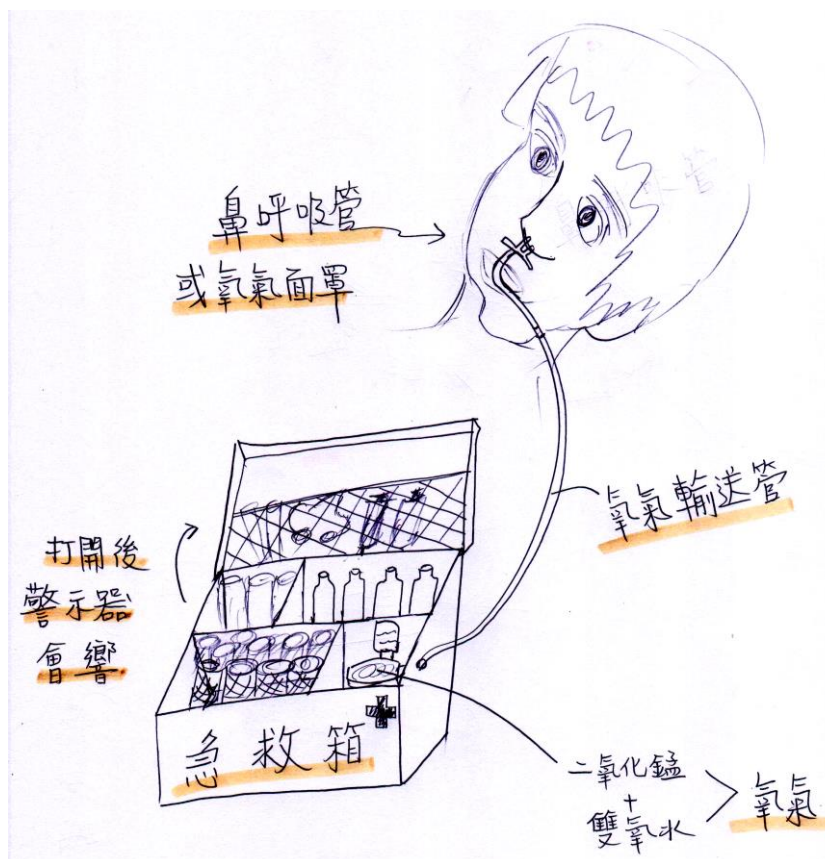 鼻呼吸管
或氧氣面罩
氧氣輸送管
打開後
警示器
會響
急救箱
二氧化錳
+
雙氧水
氧氣